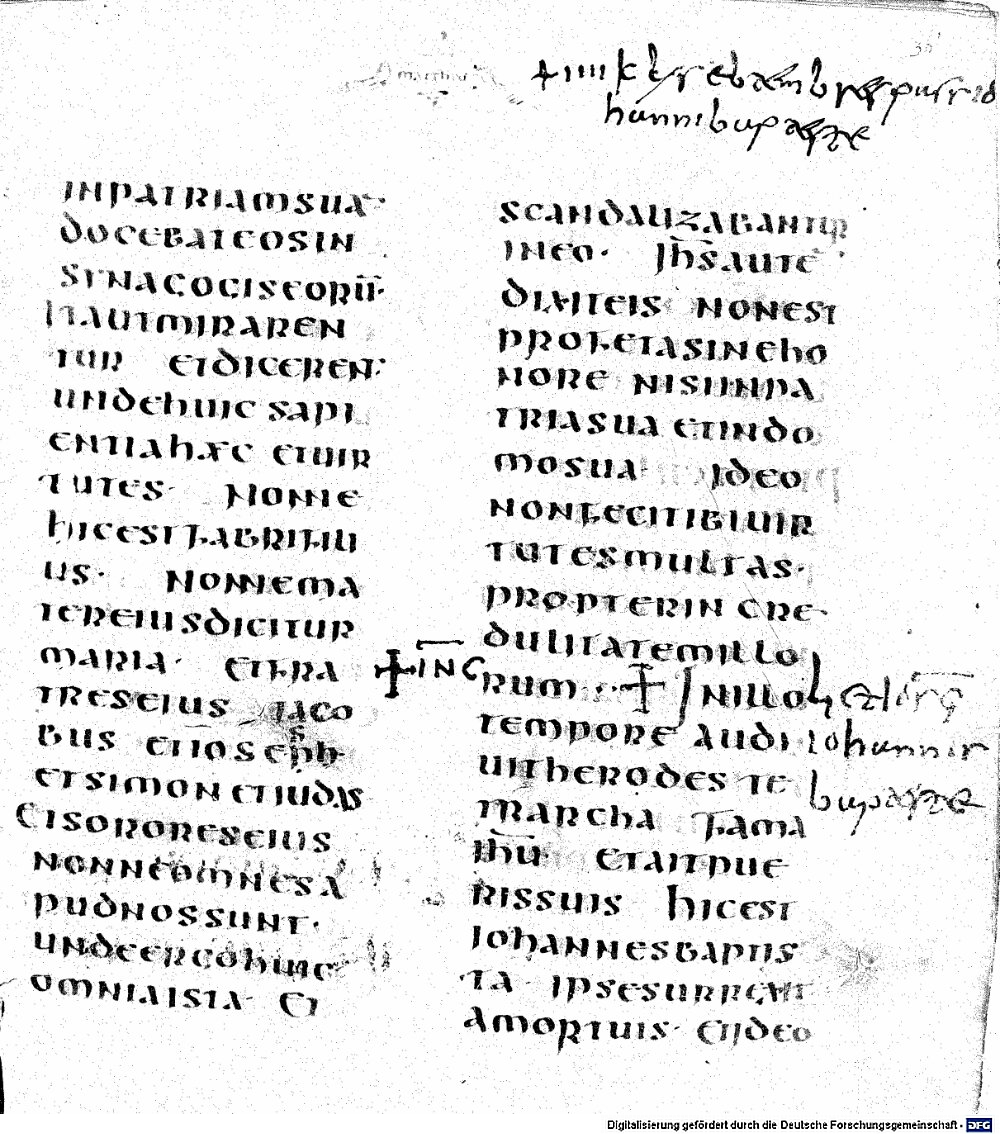 INPATRIAMSUA·
DOCEBATEOSIN
SYNAGOGISEORŪ·
ITAUTMIRAREN
TUR ETDICERENT·
UNDEHUIC SAPI
ENTIAHAEC ETUIR
TUTES· NONNE
HICESTFABRIFILI
US· NONNEMA
TEREIUSDICITUR
MARIA· ETFRA
TRESEIUS IACO
BUS ETIOSEPH
ETSIMON ETIUDAS
ETSORORESEIUS
NONNEOMNESA
PUDNOSSUNT·
UNDEERGOHUIC
OMNIAISTA ET
SCANDALIZABANTUR
INEO· IH̅S̅AUTĒ
DIXITEIS NONEST
PROFETASINEHO
NORE NISIINPA
TRIASUA ETINDO
MOSUA· IDEO
NONFECITIBIUIR
TUTESMULTAS·
PROPTERINCRE
DULITATEMILLO
✝INC RUM· ✝ INILLO
TEMPORE AUDI iohannis
UITHERODES TE
TRARCHA FAMA
IH̅U̅· ETAITPUE
RISSUIS HICEST
IOHANNESBAPTIS
TA IPSESURREXIT
AMORTUIS· ETIDEO
Digitalisierung gefördert durch die Deutsche Forschungsgemeinschaft - DFG